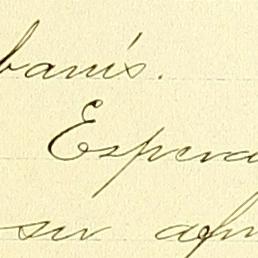 banís.
Espera
su afm